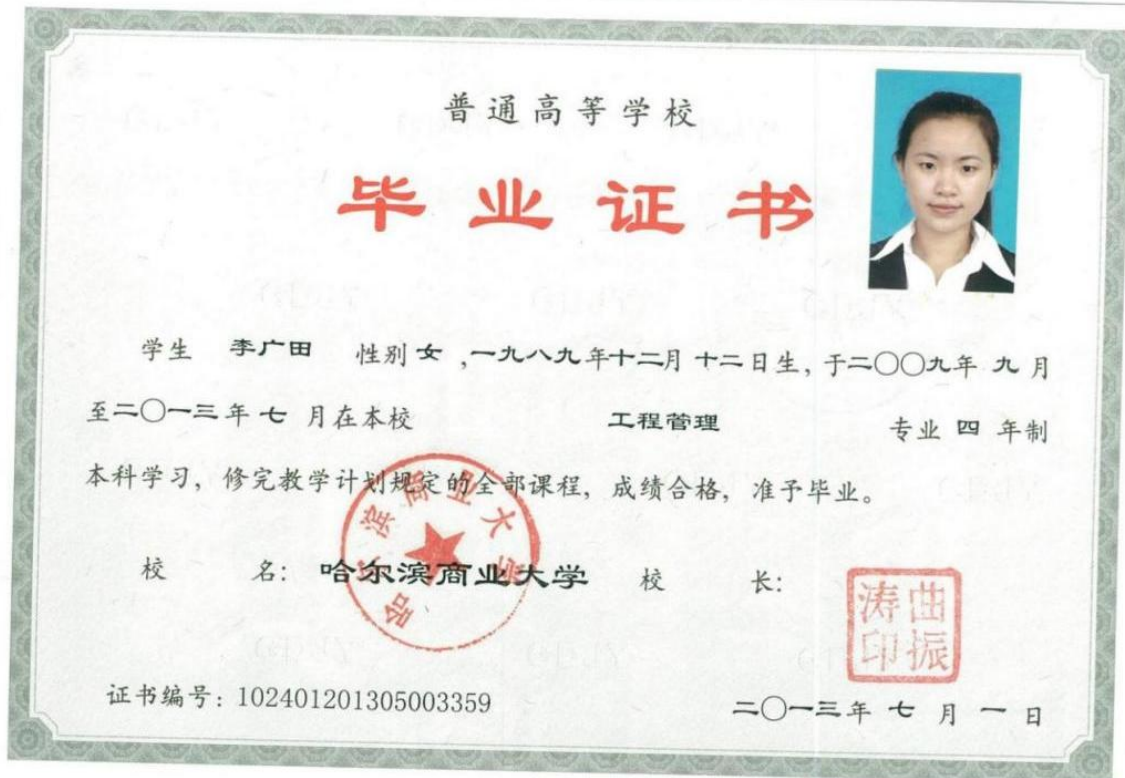 普通高等学校
毕业证书
学生 李广田 性别 女 ,一九八九年十二月 十二日生, 于二〇〇九年 九 月
至二〇一三年 七 月在本校 工程管理 专业 四 年制
本科学习, 修完教学计划规定的全部课程, 成绩合格, 准予毕业。
校 名: 哈尔滨商业大学 校 长:
哈尔滨商业大学
曲振
涛印
证书编号: 102401201305003359
二〇一三年 七 月 一 日